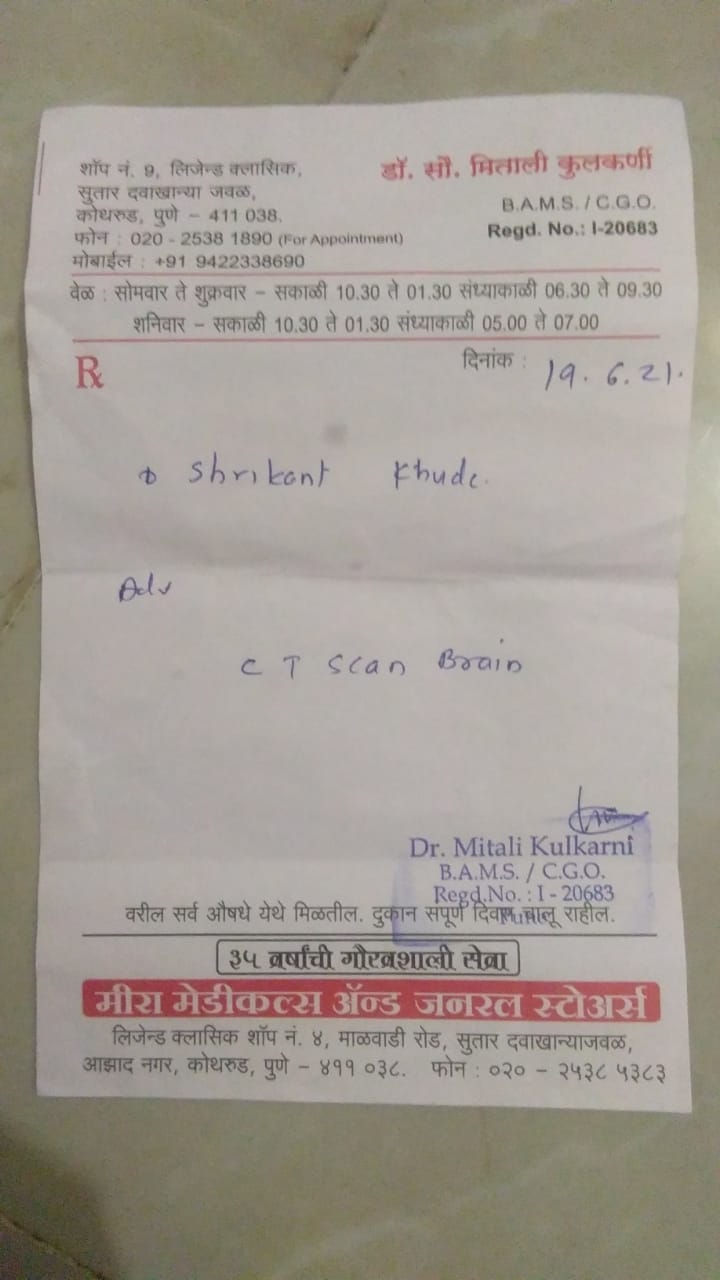 डॉ. सौ. मिताली कुलकर्णी
B.A.M.S. / C.G.O.
Regd. No.: I-20683
शॉप नं. 9, लिजेन्ड क्लासिक,
सुतार दवाखान्या जवळ,
कोथरुड, पुणे – 411 038.
फोन : 020 - 2538 1890 (For Appointment)
मोबाईल : +91 9422338690
वेळ : सोमवार ते शुक्रवार – सकाळी 10.30 ते 01.30 संध्याकाळी 06.30 ते 09.30
शनिवार – सकाळी 10.30 ते 01.30 संध्याकाळी 05.00 ते 07.00
Rx
दिनांक : 19. 6. 21.
Shrikant Khude.
Adv
CT Scan Brain
Dr. Mitali Kulkarni
B.A.M.S. / C.G.O.
Regd.No. : I - 20683
Pune
वरील सर्व औषधे येथे मिळतील. दुकान संपूर्ण दिवस चालू राहील.
३५ वर्षांची गौरवशाली सेवा
मीरा मेडीकल्स ॲन्ड जनरल स्टोअर्स
लिजेन्ड क्लासिक शॉप नं. ४, माळवाडी रोड, सुतार दवाखान्याजवळ,
आझाद नगर, कोथरुड, पुणे – ४११ ०३८. फोन : ०२० – २५३८ ५३८३